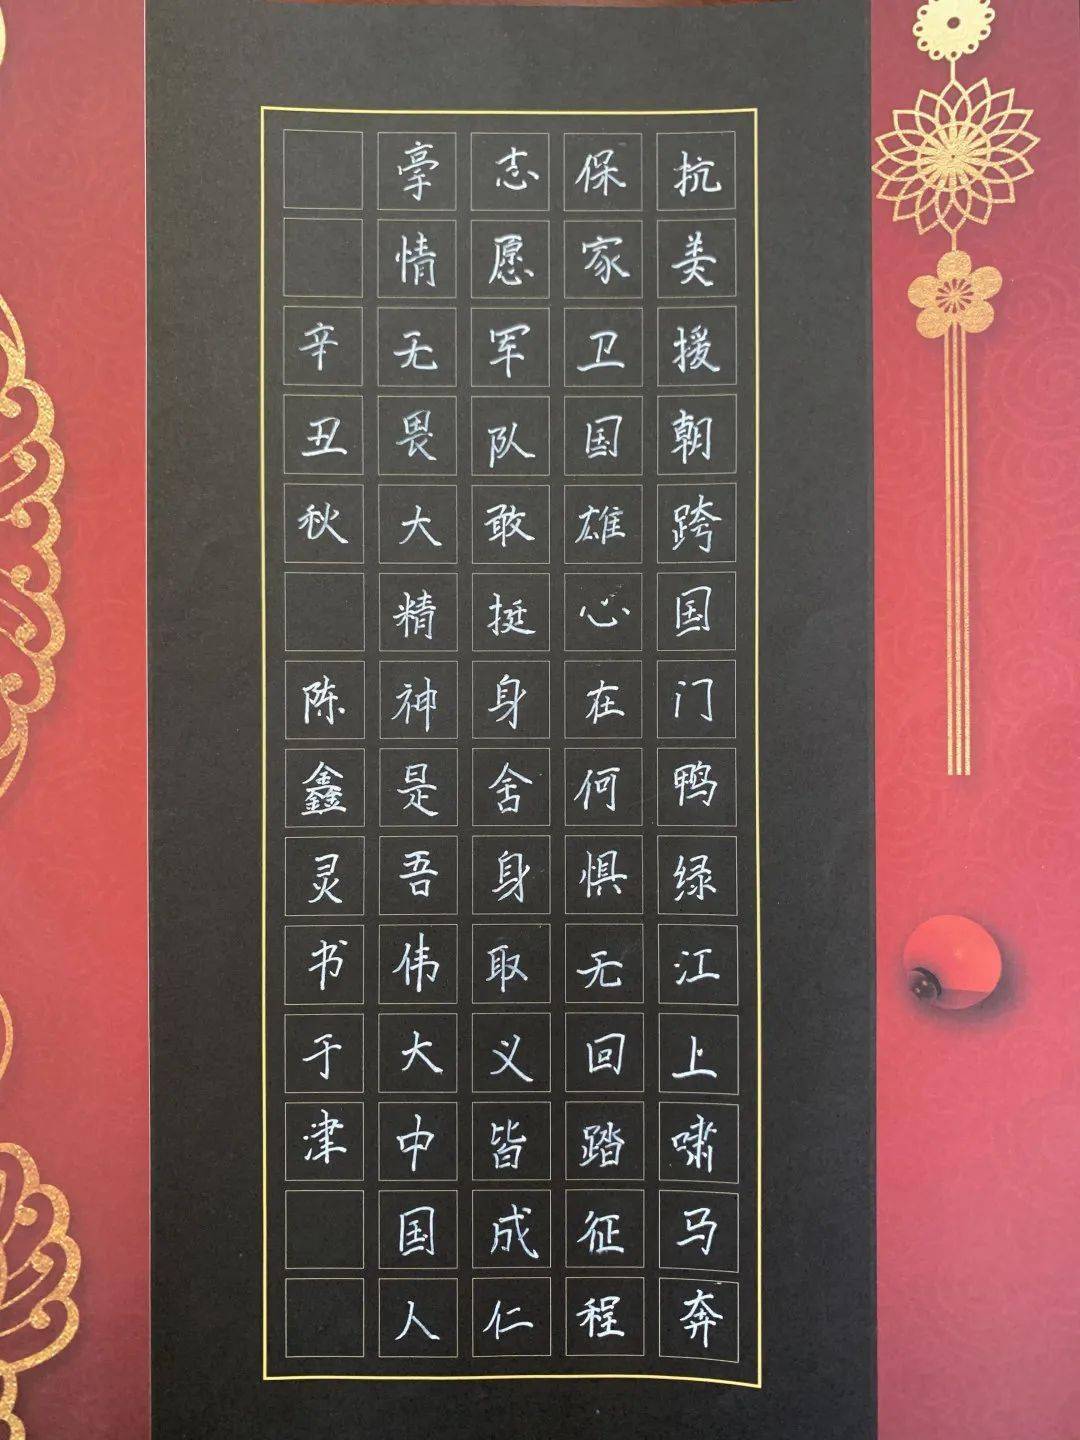 抗美援朝跨国门鸭绿江上啸马奔
保家卫国雄心在何惧无回踏征程
志愿军队敢挺身舍身取义皆成仁
豪情无畏大精神是吾伟大中国人
辛丑秋陈鑫灵书于津